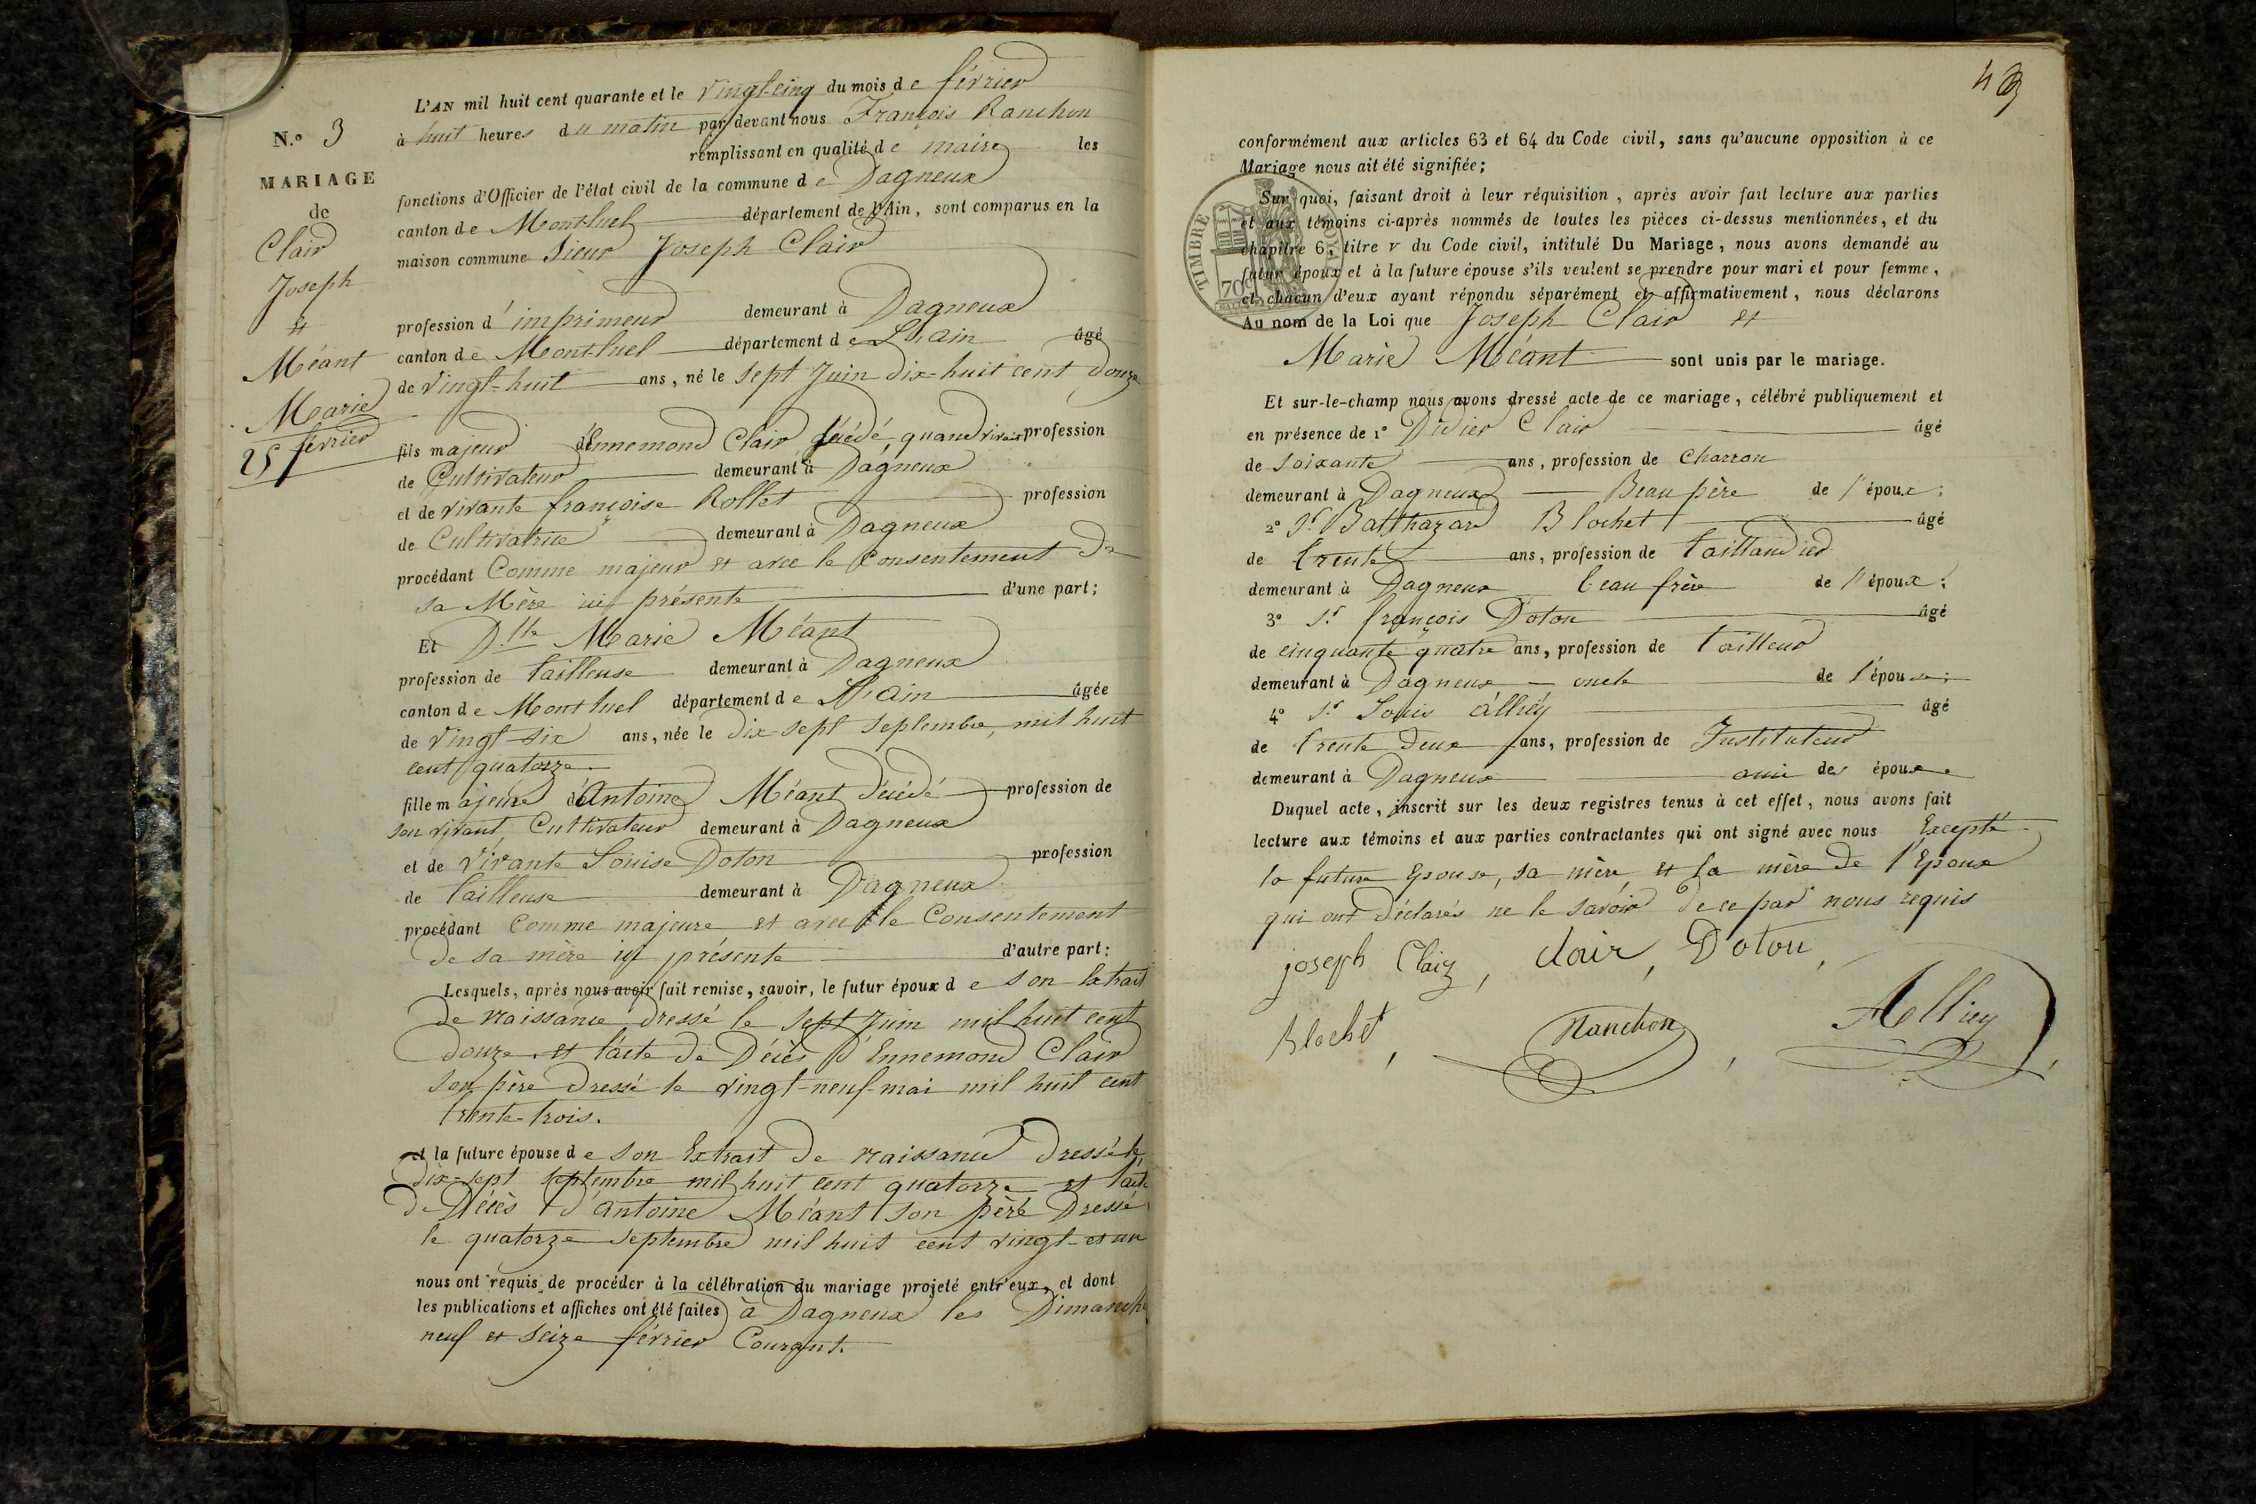 N.º 3
MARIAGE
de
Clair
Joseph
et
Méant
Marie
25 février
L'AN mil huit cent quarante et le vingt-cinq du mois de février
à huit heures du matin par devant nous François Ranchon
remplissant en qualité de maire les
fonctions d'Officier de l'état civil de la commune de Dagneux
canton de Montluel département de l'Ain, sont comparus en la
maison commune Sieur Joseph Clair
profession d'imprimeur demeurant à Dagneux
canton de Montluel département de L'ain âgé
de vingt-huit ans, né le sept Juin dix-huit cent douze
fils majeur d'Ennemond Clair décédé, quand vivait profession
de Cultivateur demeurant à Dagneux
et de vivante françoise Rollet profession
de Cultivatrice demeurant à Dagneux
procédant Comme majeur et avec le Consentement de
sa Mère ici présente d'une part;
Et Dlle Marie Méant
profession de tailleuse demeurant à Dagneux
canton de Montluel département de L'ain âgée
de vingt-six ans, née le dix-sept septembre, mil huit
cent quatorze
fille majeure d'Antoine Méant décédé profession de
son vivant, Cultivateur demeurant à Dagneux
et de vivante Louise Doton profession
de tailleuse demeurant à Dagneux
procédant Comme majeure et avec le Consentement
de sa mère ici présente d'autre part:
Lesquels, après nous avoir fait remise, savoir, le futur époux de son Extrait
de naissance dressé le sept Juin mil huit cent
douze et l'acte de Décès d'Ennemond Clair
son père dressé le vingt-neuf mai mil huit cent
trente-trois.
et la future épouse de son Extrait de naissance dressé le
dix-sept septembre mil huit cent quatorze et l'acte
de Décès d'antoine Méant son père Dressé
le quatorze septembre mil huit cent vingt-et un
nous ont requis de procéder à la célébration du mariage projeté entr'eux, et dont
les publications et affiches ont été faites à Dagneux les Dimanche
neuf et seize février Courant.
43
conformément aux articles 63 et 64 du Code civil, sans qu'aucune opposition à ce
Mariage nous ait été signifiée;
Sur quoi, faisant droit à leur réquisition, après avoir fait lecture aux parties
et aux témoins ci-après nommés de toutes les pièces ci-dessus mentionnées, et du
chapitre 6, titre v du Code civil, intitulé Du Mariage, nous avons demandé au
futur époux et à la future épouse s'ils veulent se prendre pour mari et pour femme,
et chacun d'eux ayant répondu séparément et affirmativement, nous déclarons
Au nom de la Loi que Joseph Clair et
Marie Méant sont unis par le mariage.
TIMBRE
70c
Et sur-le-champ nous avons dressé acte de ce mariage, célébré publiquement et
en présence de 1º Didier Clair âgé
de soixante ans, profession de charron
demeurant à Dagneux Beau père de l'époux;
2º Sr Balthazar Blochet âgé
de trente ans, profession de taillandier
demeurant à Dagneux beau frère de l'époux;
3º Sr françois Doton âgé
de cinquante quatre ans, profession de tailleur
demeurant à Dagneux oncle de l'épouse;
4º Sr Louis alliey âgé
de trente deux ans, profession de Instituteur
demeurant à Dagneux ami des époux
Duquel acte, inscrit sur les deux registres tenus à cet effet, nous avons fait
lecture aux témoins et aux parties contractantes qui ont signé avec nous Excepté
la future Epouse, sa mère, et la mère de l'Epoux
qui ont déclarés ne le savoir de ce par nous requis
joseph Clair, clair, Doton,
Blochet, Ranchon, Alliey,